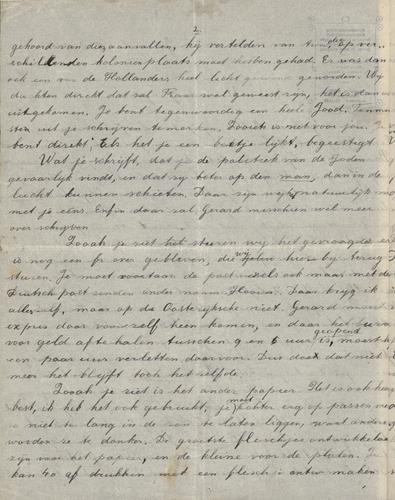 2
gehoord van die aanvallen, hij vertelden van, op ver-
schillenden kolonieplaats moet hebben gehad. Er was dan
ook een van de Hollanders heel licht gewond geworden. Wij
dachten direkt dat zal Frans wel geweest zijn, het is dan
uitgekomen. Je bent tegenwoordig een heele Jood. Tenmin
sten uit je schrijven te merken. Zooiets is niet voor jou. Je
bent direkt, Els het je een beetje lijkt, begeestigt.
Wat je schrijft, dat je de politiek van de Joden
gevaarlijk vindt, en dat zij beter op den man, dan in de
lucht kunnen schieten. Daar zijn wij natuurlijk
met je eens. Enfin daar zal Gerard misschien wel meer
over schrijven.
Zooals je ziet het sturen wij het gevraagde
is nog een fr over gebleven, die wij hierbij terug
sturen. Je moet voortaan de post ook maar met de
Duitsch post zenden onder naam. Daar krijg ik
alles, maar op de Oostenrijksche niet. Gerard moest
expres daar voor zelf heen komen, en daar het bureau
voor geld af te halen tusschen 9 en 6 uur geopend is, moest hij
een paar uur verletten daarvoor. Dus doet dat niet
meer het blijft toch het zelfde.
Zooals je ziet is het ander papier. Het is ook heel
best, ik heb het ook gebruikt, je moet echter erg op passen
ze niet te lang in de zon te laten liggen, want anders
worden ze te donker. De grootste fleschjes ontwikkelaar
zijn voor het papier, en de kleine voor de platen. Je
kan 40 af drukken met een flesch ontw maken